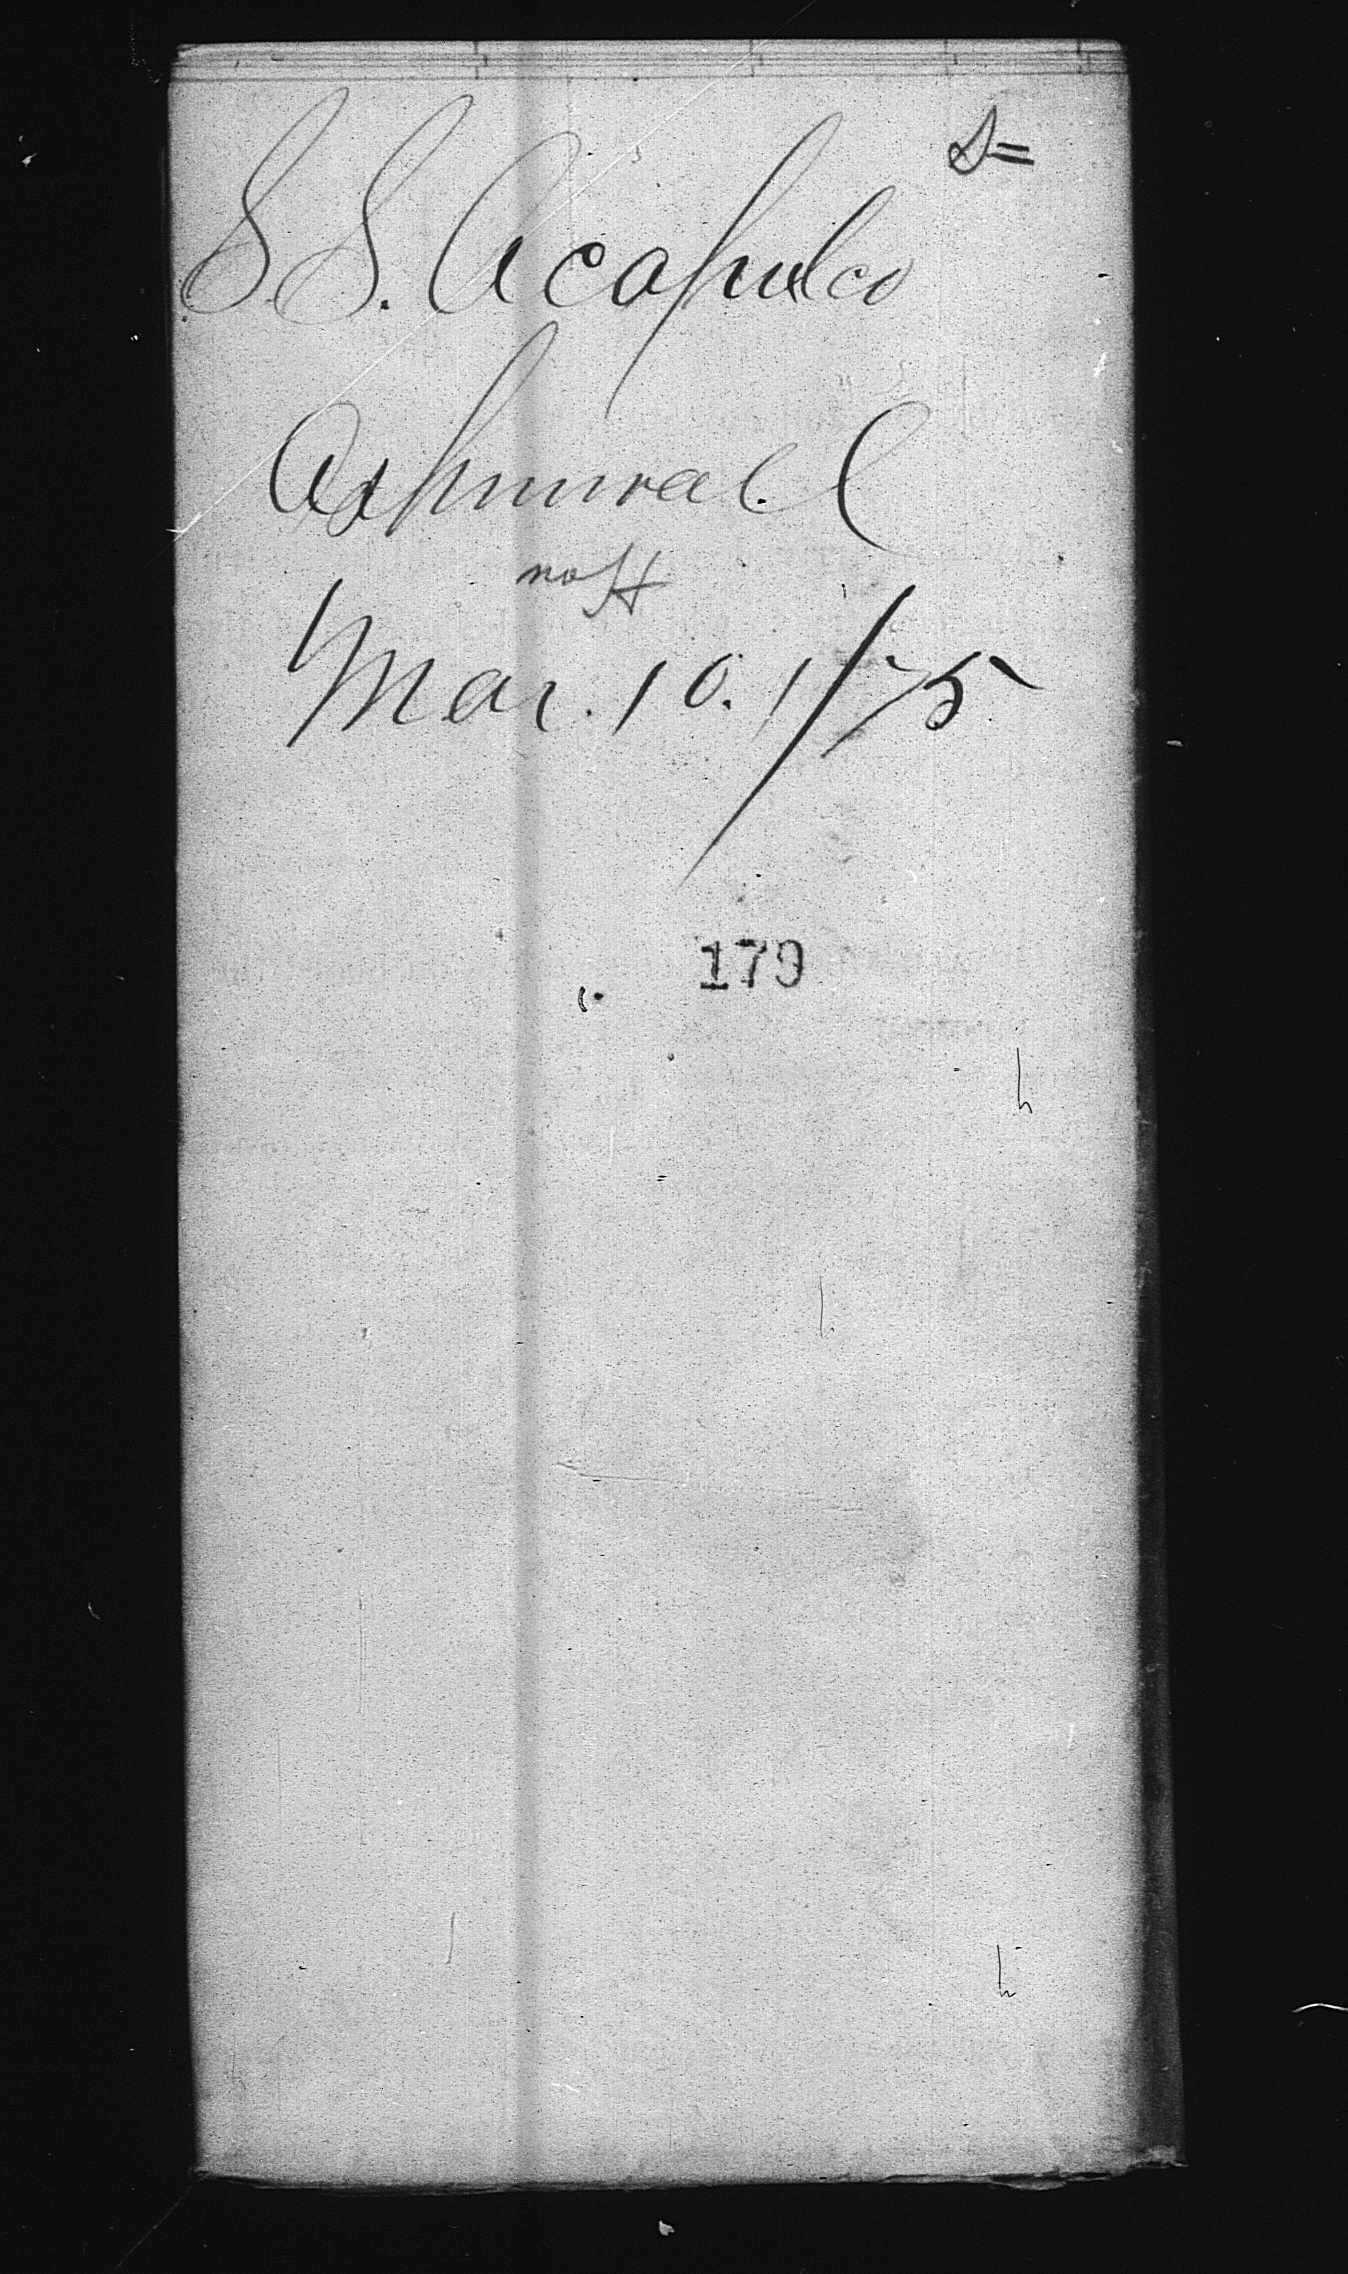 S=
S.S. Acapulco
Aspinwall
no H
Mar. 10. 1875
179